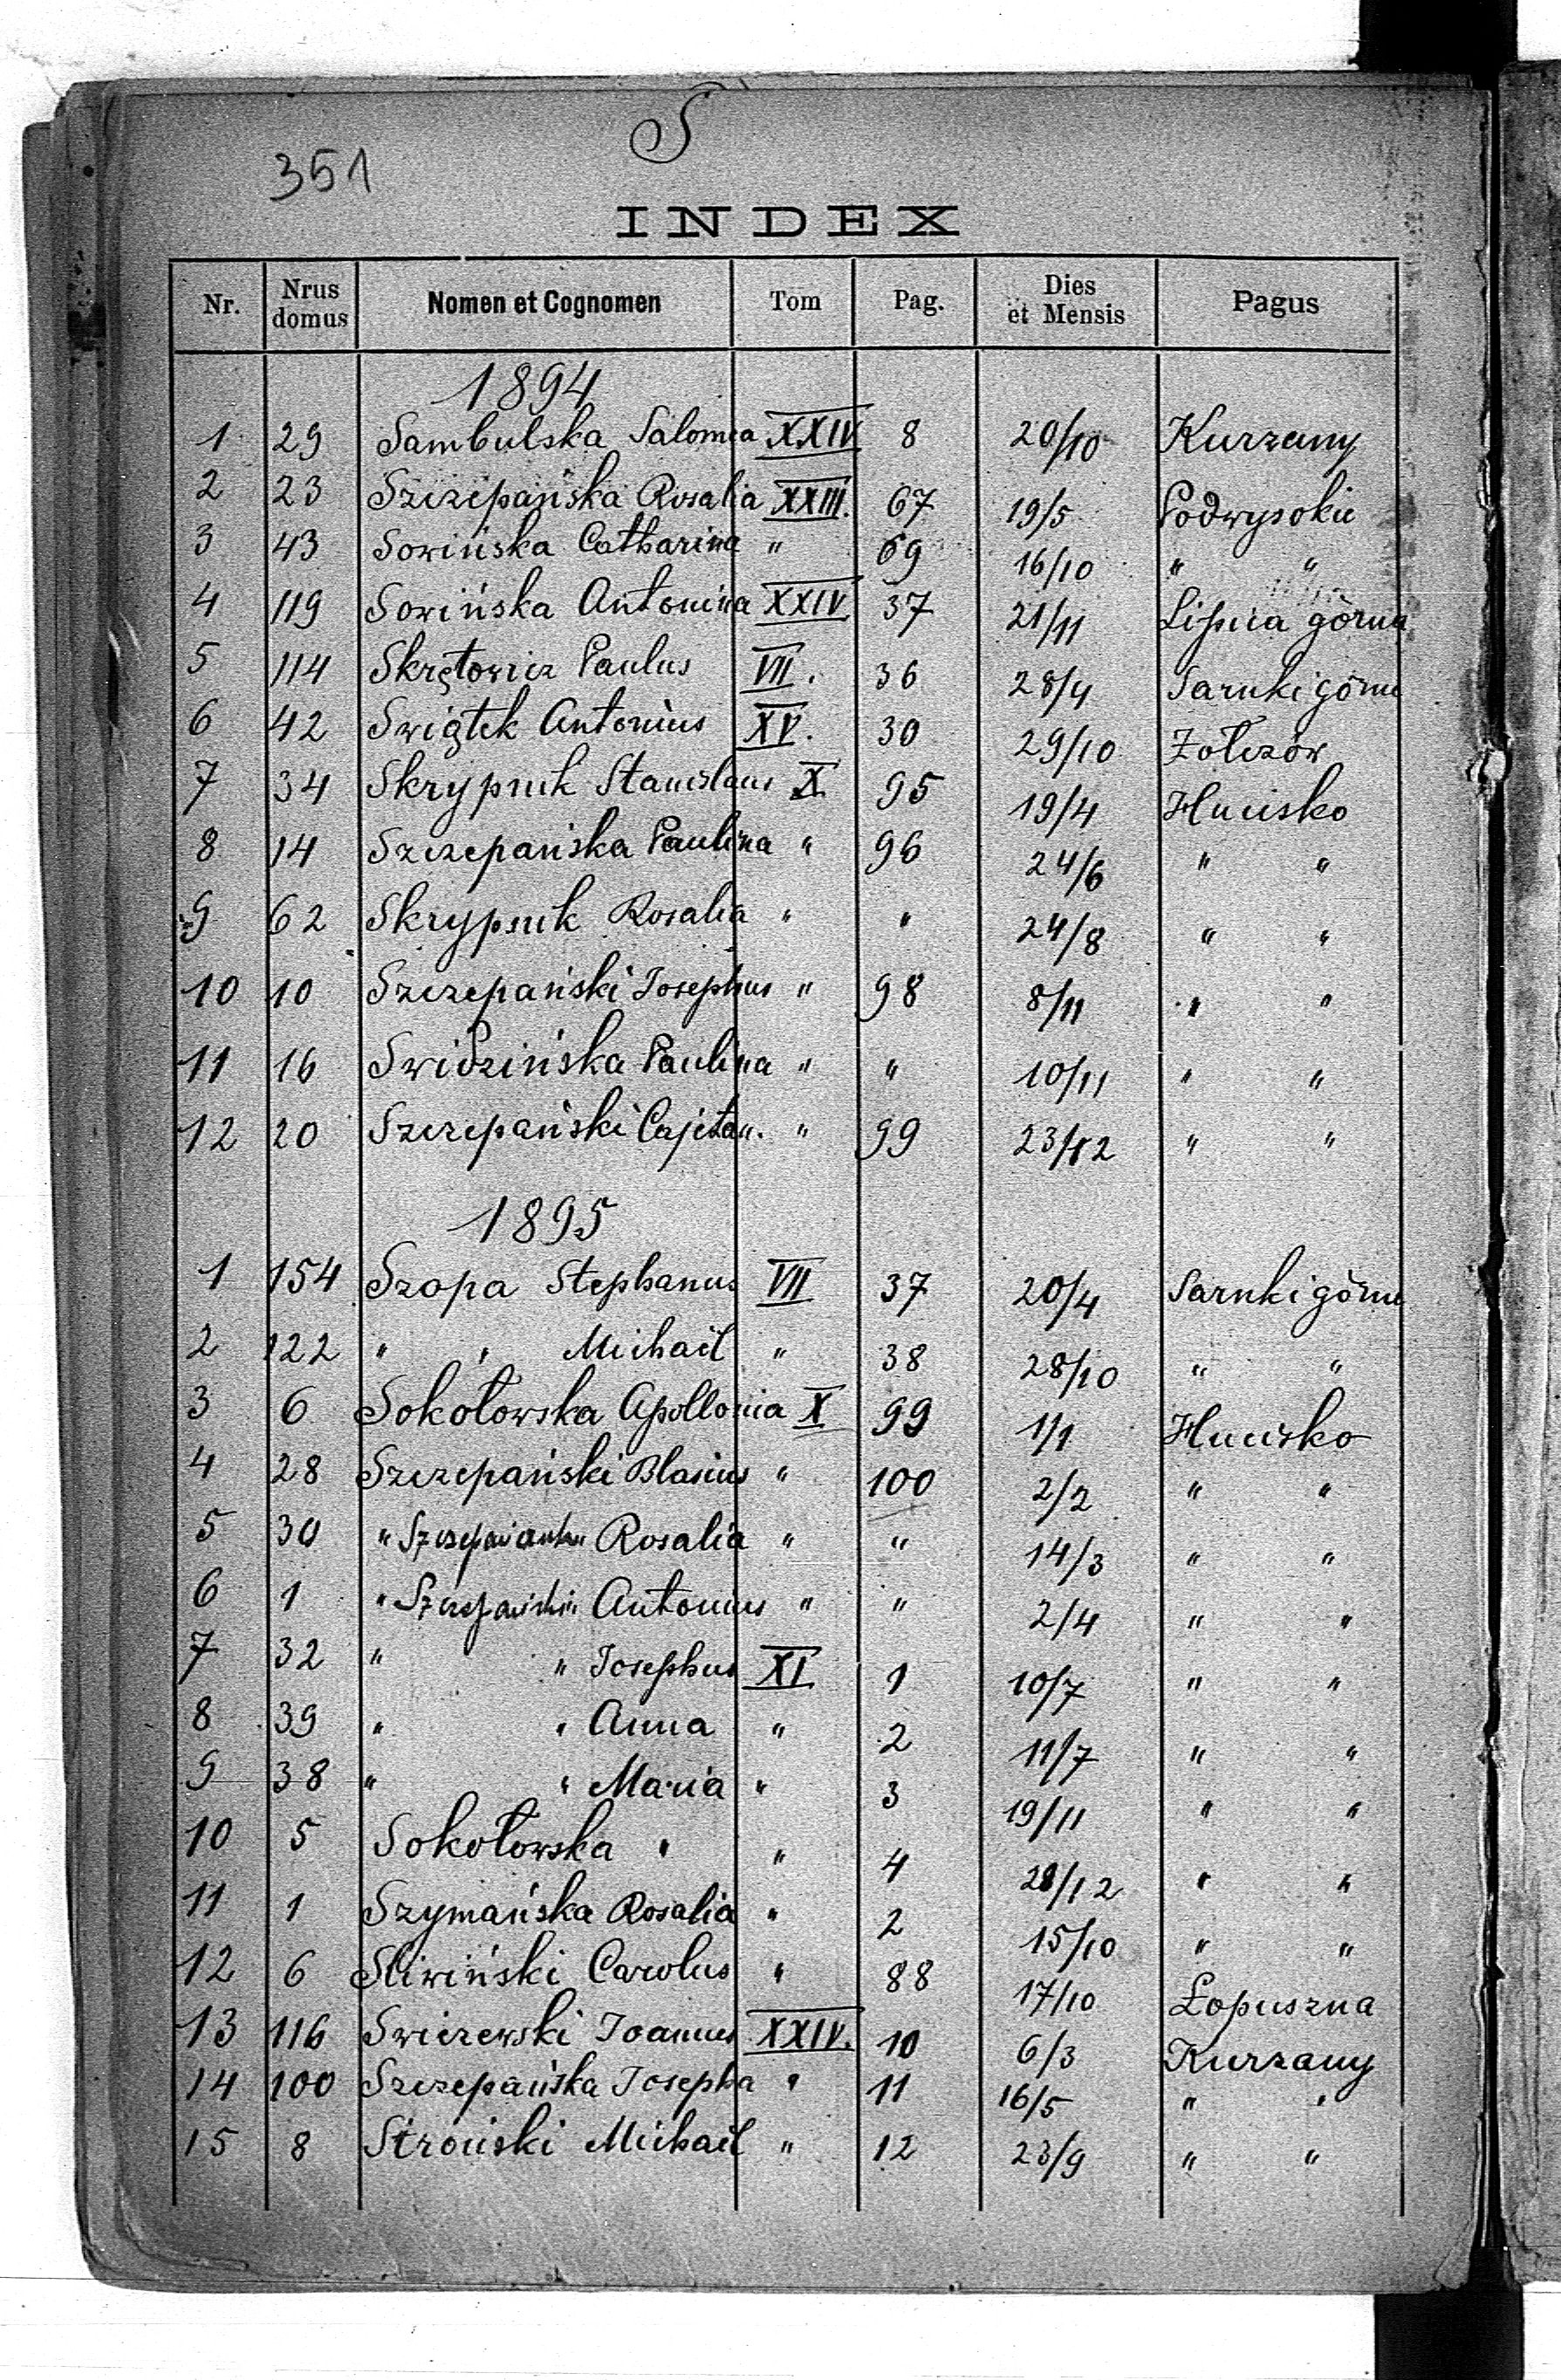 S
351
INDEX
Nr. Nrus domus Nomen et Cognomen Tom Pag. Dies et Mensis Pagus
1894
1 29 Sambulska Salomea XXIV 8 20/10 Kurzany
2 23 Szczepańska Rosalia XXIII. 67 19/5 Podwysokie
3 43 Sowińska Catharina " 69 16/10 " "
4 119 Sowińska Antonina XXIV. 37 21/11 Lipica górna
5 114 Skrętowicz Paulus VII. 36 28/4 Sarnki górne
6 42 Swiątek Antonius XV. 30 29/10 Żołczów
7 34 Skrypnik Stanislaus X. 95 19/4 Hucisko
8 14 Szczepańska Paulina " 96 24/6 " "
9 62 Skrypnik Rosalia " " 24/8 " "
10 10 Szczepański Josephus " 98 8/11 " "
11 16 Swidzińska Paulina " " 10/11 " "
12 20 Szczepański Cajetan. " 99 23/12 " "
1895
1 154 Szopa Stephanus VII 37 20/4 Sarnki górne
2 122 " " Michaël " 38 28/10 " "
3 6 Sokołowska Apollonia X 99 1/1 Hucisko
4 28 Szczepański Blasius " 100 2/2 " "
5 30 " " Rosalia " " 14/3 " "
6 1 " Szczepański " Antonius " " 2/4 " "
7 32 " " Josephus XI 1 10/7 " "
8 39 " " Anna " 2 11/7 " "
9 38 " " Maria " 3 19/11 " "
10 5 Sokołowska " " 4 28/12 " "
11 1 Szymańska Rosalia " 2 15/10 " "
12 6 Sliwiński Carolus " 88 17/10 Łopuszna
13 116 Swiczewski Joannes XXIV. 10 6/3 Kurzany
14 100 Szczepańska Josepha " 11 16/5 " "
15 8 Stroński Michaël " 12 23/9 " "